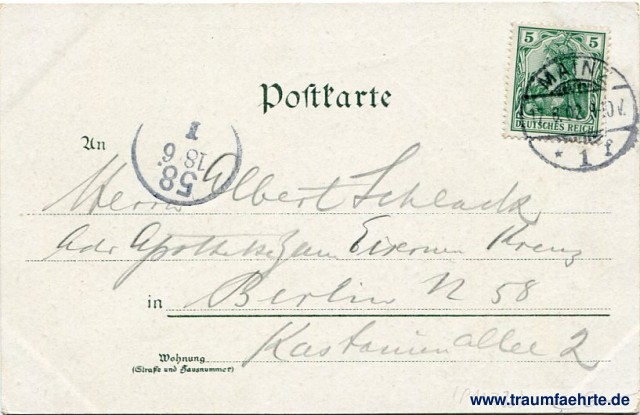 5 5
DEUTSCHES REICH
MAINZ
* 1 f
Postkarte
An
I
18 6
58
Herrn Albert Schlack
Adr Apotheke zum Eisernen Kreuz
in Berlin N 58
Kastanienallee 2
Wohnung
(Straße und Hausnummer)
www.traumfaehrte.de